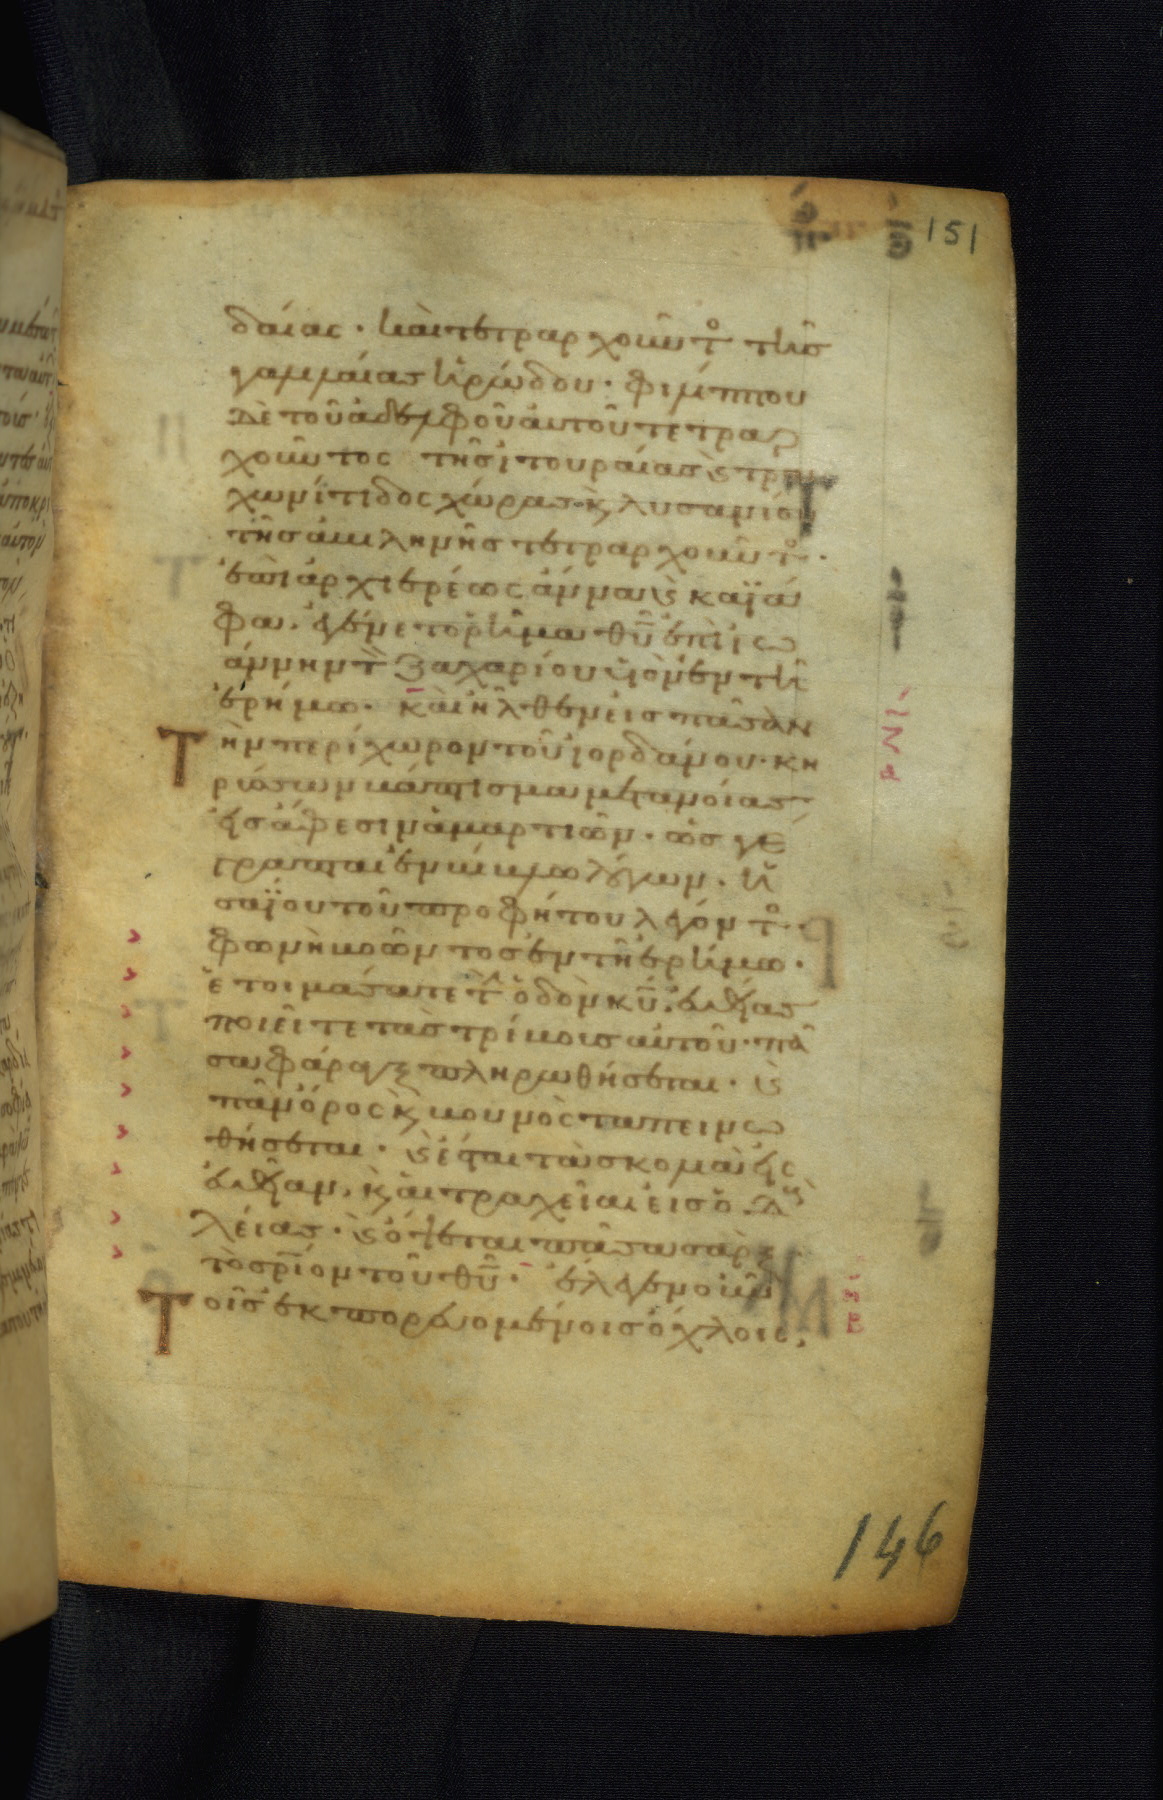 151
δαίας · καὶ τετραρχοῦντ̊ τῆς
γαλιλαίας ἡρώδου · φιλίππου
δὲ τοῦ ἀδελφοῦ αὐτοῦ τετραρ
χοῦντος τῆς ἰτουραίας ϗ τρα
χωνίτιδος χώρας · ϗ λυσανίου
τῆς ἀβιληνῆς τετραρχοῦντ̊ ·
ἐπὶ ἀρχιερέως ἄννα ϗ καϊά
φα · ἐγένετο ῥῆμα θῦ ἐπὶ ἰω
άννην τ̀ ζαχαρίου υἱὸν ἐν τῆ
ἐρήμω · καὶ ἦλθεν εἰς πᾶσαν
τὴν περίχωρον τοῦ ἰορδάνου · κη
ρύσσων βάπτισμα μετανοίας
εἰς ἄφεσιν ἁμαρτιῶν · ὡς γέ
γραπται ἐν βίβλω λόγων · ἡ
σαΐου τοῦ προφήτου λέγοντ̊ ·
φωνὴ βοῶντος ἐν τῆ ἐρήμω ·
ἑτοιμάσατε τ̀ ὁδὸν κῦ · εὐθείας
ποιεῖτε τὰς τρίβους αὐτοῦ · πᾶ
σα φάραγξ πληρωθήσεται · ϗ
πᾶν ὄρος ϗ βουνὸς ταπεινω
θήσεται · ϗ ἔσται τὰ σκολιὰ εἰς
εὐθεῖαν · ϗ αἱ τραχεῖαι εἰς ὁδ̀
λείας · ϗ ὄψεται πᾶσα σὰρξ
τὸ σρ̄ίον τοῦ θῦ · ἔλεγεν οὖν
τοῖς ἐκπορευομένοις ὄχλοις ·
146